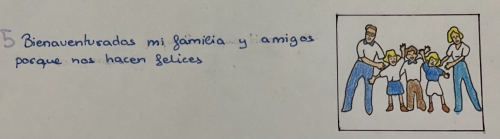 5 Bienaventuradas mi familia y amigos
porque nos hacen felices